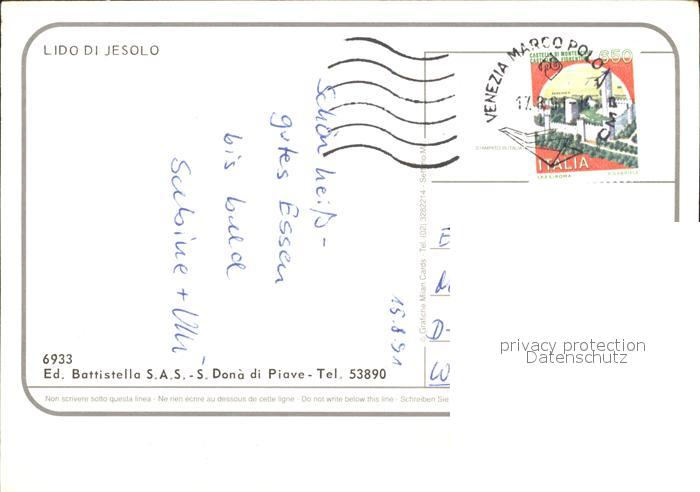 LIDO DI JESOLO
VENEZIA MARCO POLO
CMP
17.8.91
CASTELLO DI MONTE
650
ITALIA
I.P.Z.S. ROMA
STAMPATO IN ITALIA
15.8.91
Schön heiß -
gutes Essen
bis bald
Sabine + Ulli
© Grafiche Milan Cards - Tel. (02) 3282214 - Settimo M
D-
W
privacy protection
Datenschutz
6933
Ed. Battistella S.A.S. - S. Donà di Piave - Tel. 53890
Non scrivere sotto questa linea - Ne rien écrire au dessous de cette ligne - Do not write below this line - Schreiben Sie